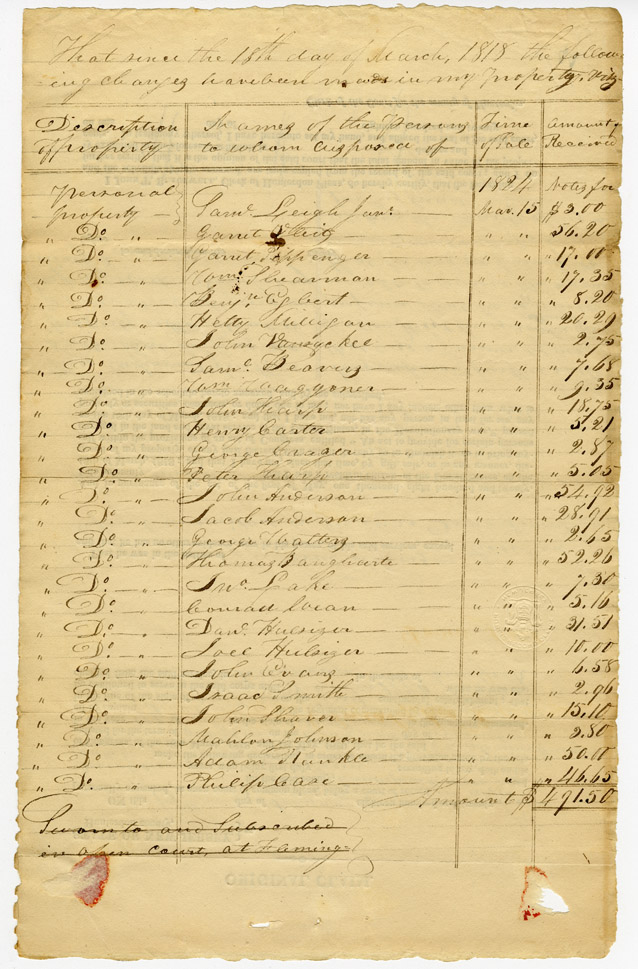 That since the 18th day of March, 1818 the follow-
ing changes have been made in my property, viz
Description of property | Names of the Persons to whom disposed of | Time of Sale | Amount Received
Personal property | Saml Leigh Junr | 1824 Mar. 15 | Notes for $3.00
" Do " | Garret | " " | 56.20
" Do " | Garret Eppenger | " " | " 17.00
" Do " | Wm. Shearman | " " | " 17.35
" Do " | Benjn Egbert | " " | " 8.20
" Do " | Hetty Milligan | " " | " 20.29
" Do " | John Vansyckel | " " | " 2.75
" Do " | Saml Beavers | " " | " 7.68
" Do " | Wm Waggoner | " " | " 9.35
" Do " | John Tharp | " " | " 18.75
" Do " | Henry Carter | " " | " 5.21
" Do " | George Crager | " " | " 2.87
" Do " | Peter Tharp | " " | " 5.05
" Do " | John Anderson | " " | " 54.92
" Do " | Jacob Anderson | " " | " 28.91
" Do " | George Watters | " " | " 2.65
" Do " | Thomas Banghart | " " | " 52.26
" Do " | Jno. Lake | " " | " 7.30
" Do " | Conrad | " " | " 5.16
" Do " | Danl. Hulsizer | " " | " 31.51
" Do " | Joel Hulsizer | " " | " 10.00
" Do " | John Evans | " " | " 6.58
" Do " | Isaac Smith | " " | " 2.96
" Do " | John Shaver | " " | " 15.10
" Do " | Mahlon Johnson | " " | " 3.80
" Do " | Adam Runkle | " " | " 50.00
" Do " | Philip Case | " " | " 46.65
Amount $ 491.50
Sworn to and Subscribed
in open court, at Fleming